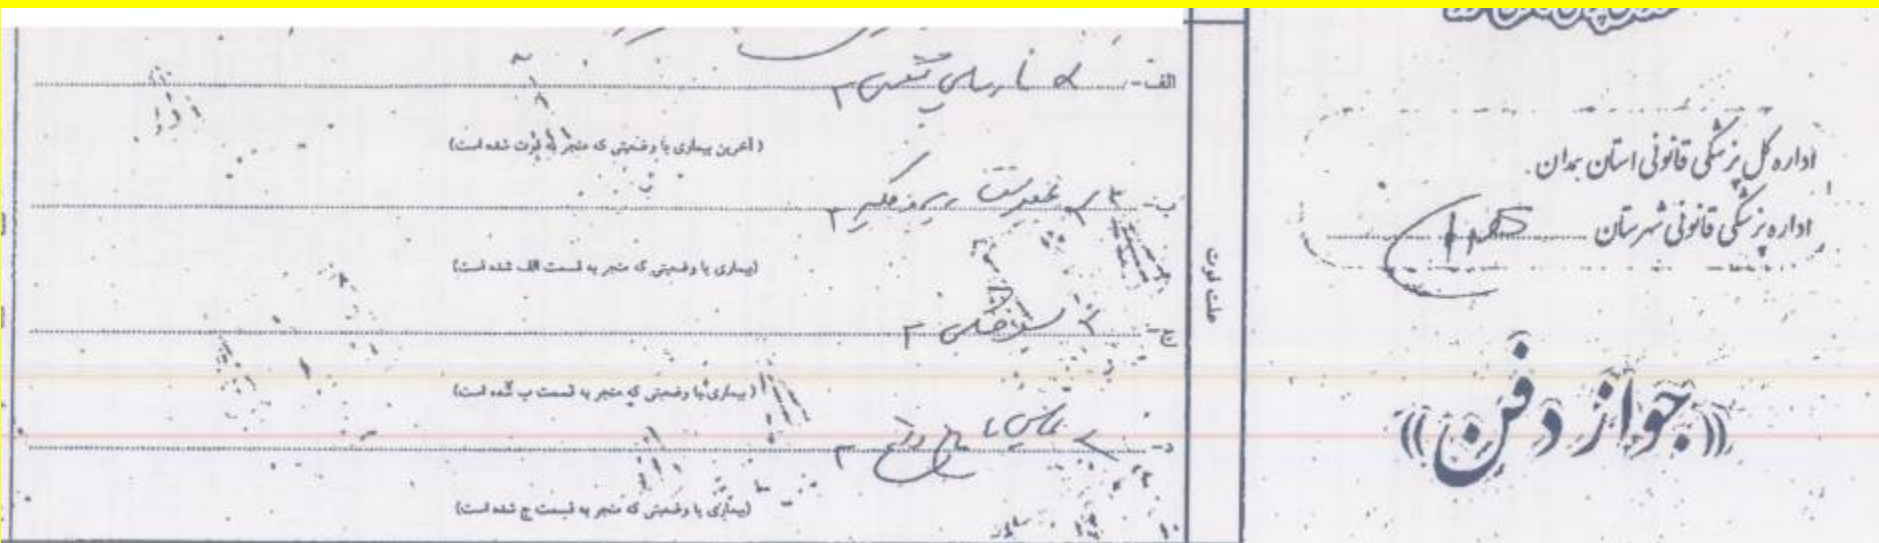 اداره کل پزشکی قانونی استان همدان
اداره پزشکی قانونی شهرستان
«جواز دفن»
علت فوت
الف- نارسایی تنفسی
(آخرین بیماری یا وضعیتی که منجر به فوت شده است)
ب-
(بیماری یا وضعیتی که منجر به قسمت الف شده است)
ج- سوختگی
(بیماری یا وضعیتی که منجر به قسمت ب شده است)
د- تماس با
(بیماری یا وضعیتی که منجر به قسمت ج شده است)